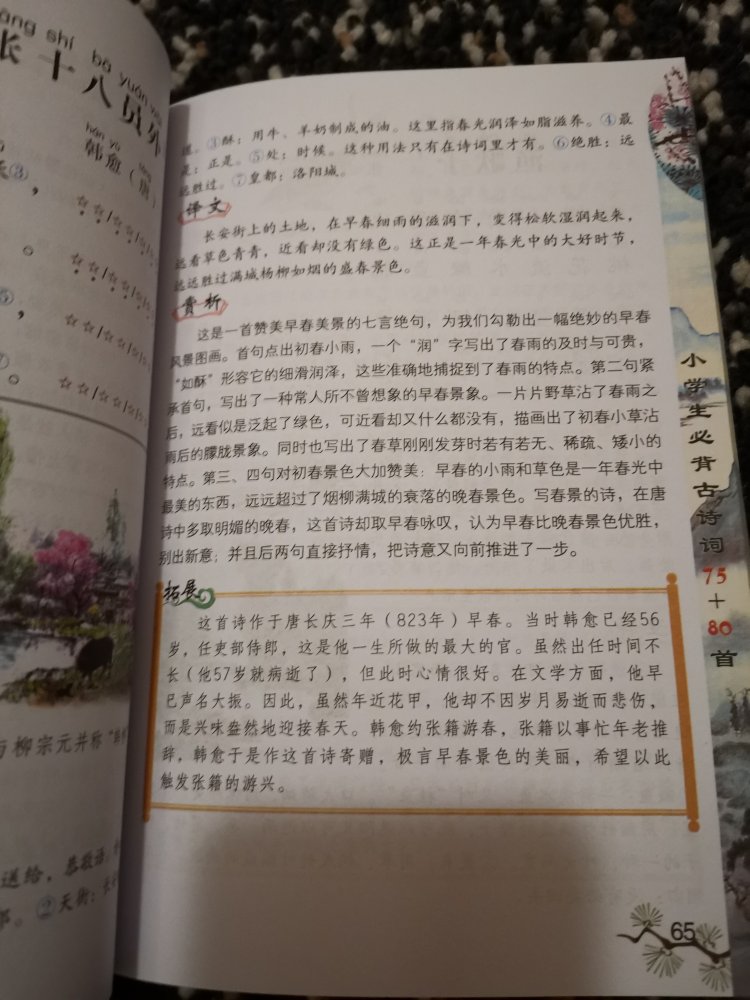 āng shí bā yuán wài
张十八员外
hán yù
韩愈（唐）
与柳宗元并称
送给，恭敬语。
②天街：
③酥：用牛、羊奶制成的油。这里指春光润泽如脂滋养。④最
是：正是。⑤处：时候。这种用法只有在诗词里才有。⑥绝胜：远
远胜过。⑦皇都：洛阳城。
译文
长安街上的土地，在早春细雨的滋润下，变得松软湿润起来，
远看草色青青，近看却没有绿色。这正是一年春光中的大好时节，
远远胜过满城杨柳如烟的盛春景色。
赏析
这是一首赞美早春美景的七言绝句，为我们勾勒出一幅绝妙的早春
风景图画。首句点出初春小雨，一个“润”字写出了春雨的及时与可贵，
“如酥”形容它的细滑润泽，这些准确地捕捉到了春雨的特点。第二句紧
承首句，写出了一种常人所不曾想象的早春景象。一片片野草沾了春雨之
后，远看似是泛起了绿色，可近看却又什么都没有，描画出了初春小草沾
雨后的朦胧景象。同时也写出了春草刚刚发芽时若有若无、稀疏、矮小的
特点。第三、四句对初春景色大加赞美：早春的小雨和草色是一年春光中
最美的东西，远远超过了烟柳满城的衰落的晚春景色。写春景的诗，在唐
诗中多取明媚的晚春，这首诗却取早春咏叹，认为早春比晚春景色优胜，
别出新意；并且后两句直接抒情，把诗意又向前推进了一步。
拓展
这首诗作于唐长庆三年（823年）早春。当时韩愈已经56
岁，任吏部侍郎，这是他一生所做的最大的官。虽然出任时间不
长（他57岁就病逝了），但此时心情很好。在文学方面，他早
已声名大振。因此，虽然年近花甲，他却不因岁月易逝而悲伤，
而是兴味盎然地迎接春天。韩愈约张籍游春，张籍以事忙年老推
辞，韩愈于是作这首诗寄赠，极言早春景色的美丽，希望以此
触发张籍的游兴。
小学生必背古诗词75＋80首
65